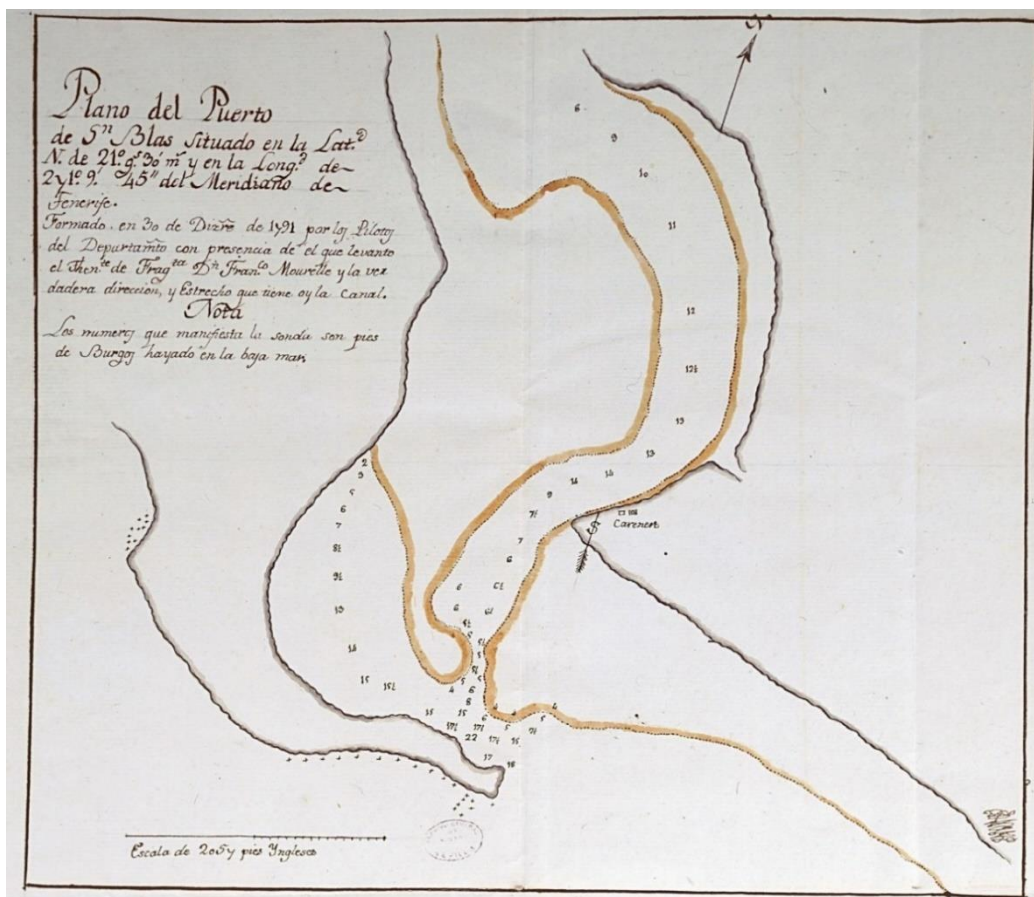 Plano del Puerto
de Sⁿ Blas Situado en la Lat.ᵈ
N. de 21º. gˢ 30 mˢ y en la Long.ᵈ de
2y1º. 9'. 45" del Meridiano de
Tenerife.
Formado en 30 de Dizrẽ de 1y91 por los Pilotos
del Departamᵗᵒ con presencia de el que levanto
el Thenᵗᵉ de Fragᵗᵃ Dⁿ Franᶜᵒ Mourelle y la ver
dadera direccion, y Estrecho que tiene oy la Canal.
Nota
Los numeros que manifiesta la sonda son pies
de Burgos hayado en la baja mar.
6
9
10
11
12
12½
13
13
14
14
9
7½
7
6
5½
6
6
6½
2
3
5
6
7
8½
9½
13
14
15
15½
15
4
6
8
15
22
17
18
Carenero
Escala de 2o5y pies Ynglesco